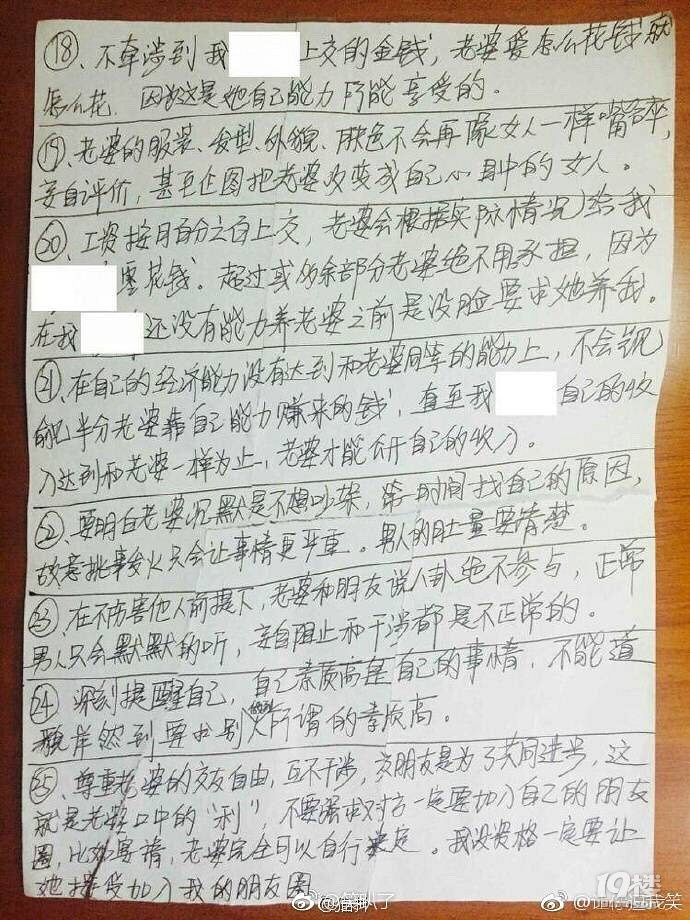 ⑱、不牵涉到我 上交的金钱,老婆爱怎么花钱就
怎么花.因为这是她自己能力所能享受的。
⑲、老婆的服装、发型、外貌、肤色不会再像女人一样嘴碎,
妄自评价,甚至企图把老婆改变成自己心目中的女人。
⑳、工资按月百分之百上交,老婆会根据实际情况给我
零花钱。超过或多余部分老婆绝不用承担,因为
在我 还没有能力养老婆之前是没脸要求她养我。
㉑、在自己的经济能力没有达到和老婆同等的能力上,不会觊
觎半分老婆靠自己能力赚来的钱,直至我 自己的收
入达到和老婆一样为止,老婆才能公开自己的收入。
㉒、要明白老婆沉默是不想吵架,第一时间找自己的原因,
故意挑事发火只会让事情更严重。男人的肚量要清楚。
㉓、在不伤害他人前提下,老婆和朋友说八卦绝不参与,正常
男人只会默默的听,妄自阻止和干涉都是不正常的。
㉔、深刻提醒自己,自己素质高是自己的事情,不能道
貌岸然到要求别人所谓的素质高。
㉕、尊重老婆的交友自由,互不干涉,交朋友是为了共同进步,这
就是老婆口中的"利",不要强求对方一定要加入自己的朋友
圈,比如宴请,老婆完全可以自行决定。我没资格一定要让
她接受加入我的朋友圈
19楼